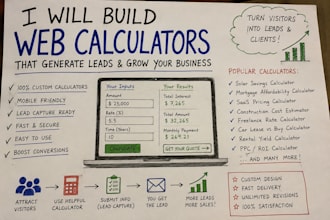 I WILL BUILD
WEB CALCULATORS
THAT GENERATE LEADS & GROW YOUR BUSINESS
TURN VISITORS
INTO LEADS &
CLIENTS!
✓ 100% CUSTOM CALCULATORS
✓ MOBILE FRIENDLY
✓ LEAD CAPTURE READY
✓ FAST & SECURE
✓ EASY TO USE
✓ BOOST CONVERSIONS
Your Inputs
Amount
$ 25,000
Rate (%)
5.5
Time (Years)
CALCULATE
Your Results
Total Interest
$ 7,265
Total Amount
$ 32,265
Monthly Payment
$ 269.21
GET YOUR QUOTE →
POPULAR CALCULATORS:
✓ Solar Savings Calculator
✓ Mortgage Affordability Calculator
✓ SaaS Pricing Calculator
✓ Construction Cost Estimator
✓ Freelance Rate Calculator
✓ Car Lease vs Buy Calculator
✓ Rental Yield Calculator
✓ PPC / ROI Calculator
... AND MANY MORE!
ATTRACT
VISITORS
USE HELPFUL
CALCULATOR
SUBMIT INFO
(LEAD CAPTURE)
YOU GET
THE LEAD
MORE LEADS
MORE SALES!
☆ CUSTOM DESIGN
☆ FAST DELIVERY
☆ UNLIMITED REVISIONS
☆ 100% SATISFACTION